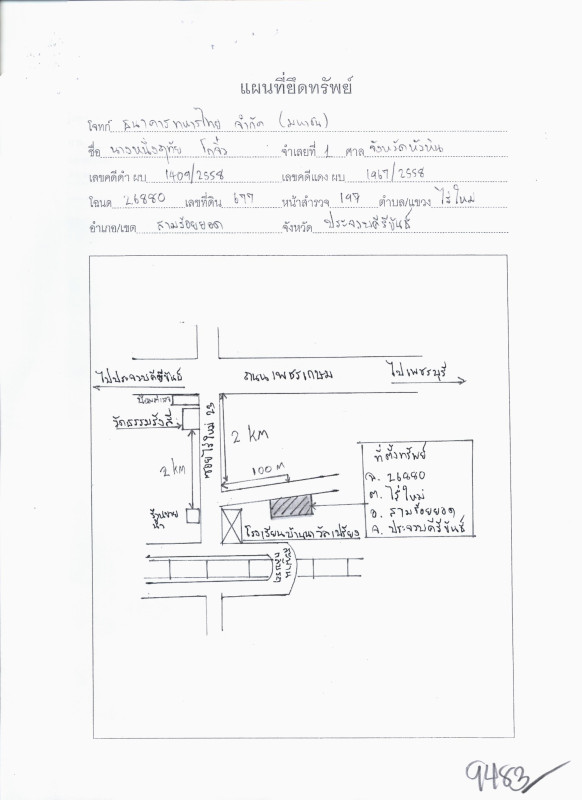 แผนที่ยึดทรัพย์
โจทก์ ธนาคารทหารไทย จำกัด (มหาชน)
ชื่อ นางหนึ่งฤทัย จำเลยที่ 1 ศาล จังหวัดหัวหิน
เลขคดีดำ ผบ 1409/2558 เลขคดีแดง ผบ 1967/2558
โฉนด 26880 เลขที่ดิน 677 หน้าสำรวจ 197 ตำบล/แขวง ไร่ใหม่
อำเภอ/เขต สามร้อยยอด จังหวัด ประจวบคีรีขันธ์
ไปประจวบคีรีขันธ์ ถนนเพชรเกษม ไปเพชรบุรี
วัดธรรมรังสี
ซอยไร่ใหม่ 23
2 KM
2 KM
100 M
ที่ตั้งทรัพย์
ฉ. 26880
ต. ไร่ใหม่
อ. สามร้อยยอด
จ. ประจวบคีรีขันธ์
ร้านขาย
โรงเรียนบ้านนาวัลเปรียง
สะพาน
กลับรถ
9483